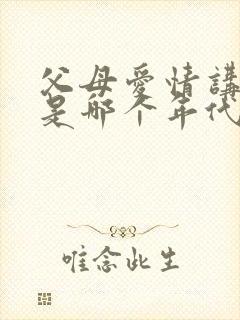 父母爱情講
是那个年代
唯念此生